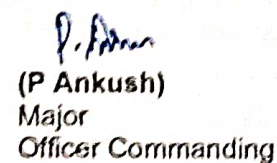 (P Ankush)
Major
Officer Commanding